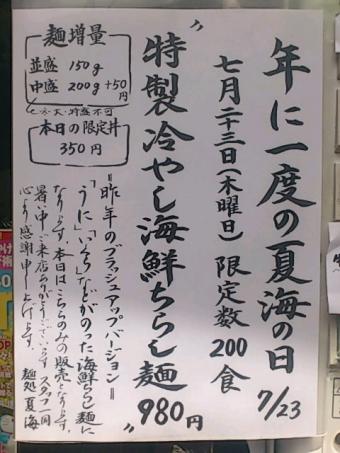 年に一度の夏海の日 7/23
七月二十三日(木曜日) 限定数200食
"特製冷やし海鮮ちらし麺" 980円
麺増量
並盛 150g
中盛 200g +50円
本日の限定丼
350円
=昨年のブラッシュアップバージョン=
「うに」「いくら」などがのった海鮮ちらし麺に
なります。本日はこちらのみの販売となります。
暑い中ご来店ありがとうございます。スタッフ一同
心より感謝申し上げます。 麺処 夏海